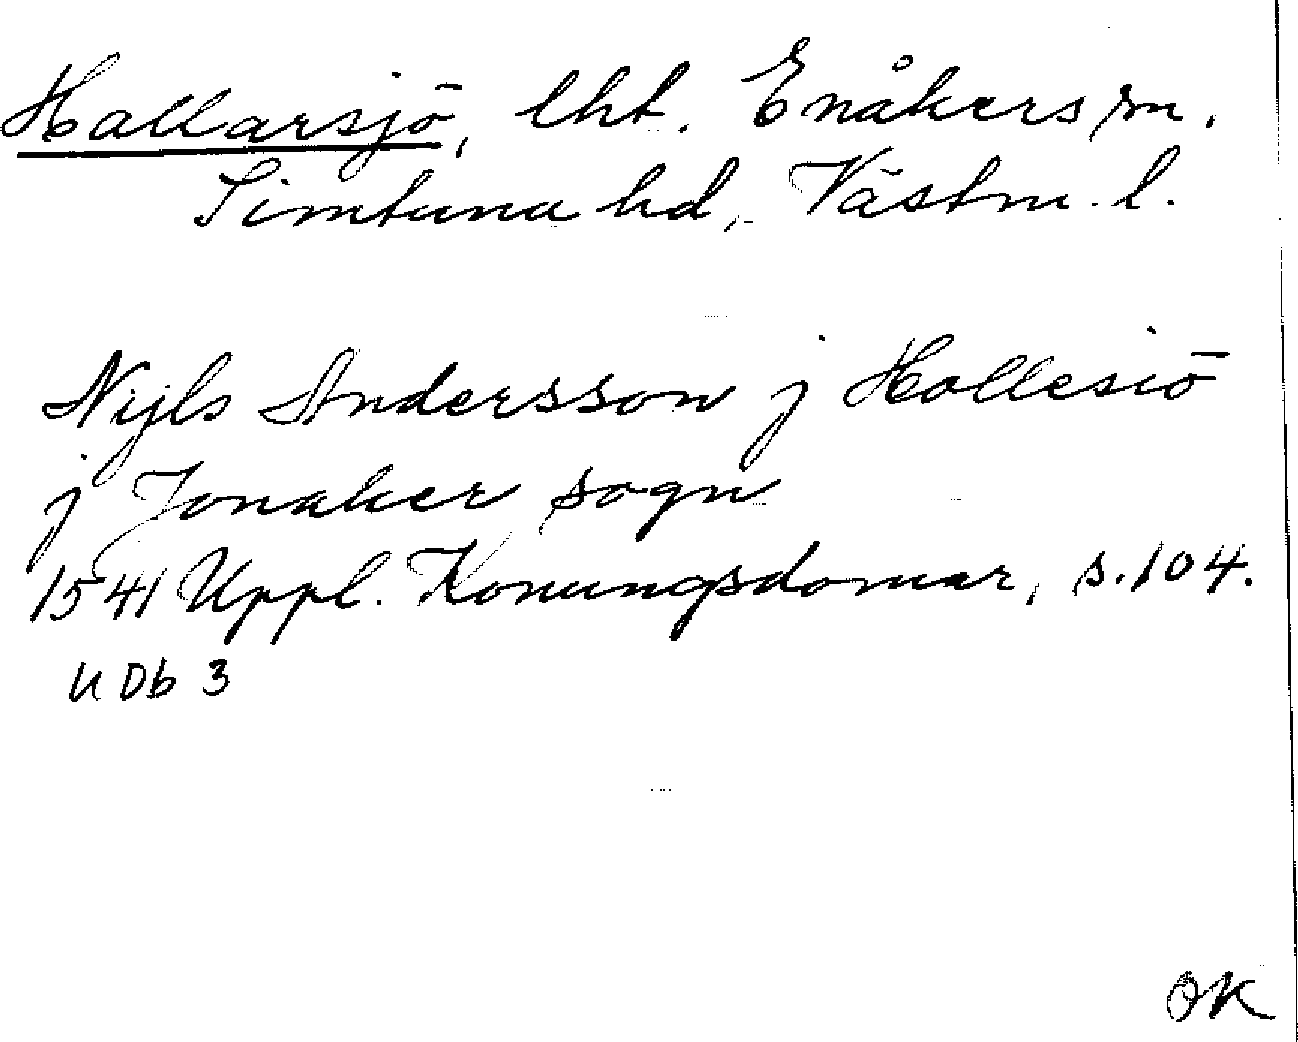 Hallarsjö, lht. Enåkers sn.
Simtuna hd, Västm. l.
Nijls Andersson j Hallesiö
j Jonaker sogn
1541 Uppl. Konungsdomar, s. 104.
UDb 3
OK